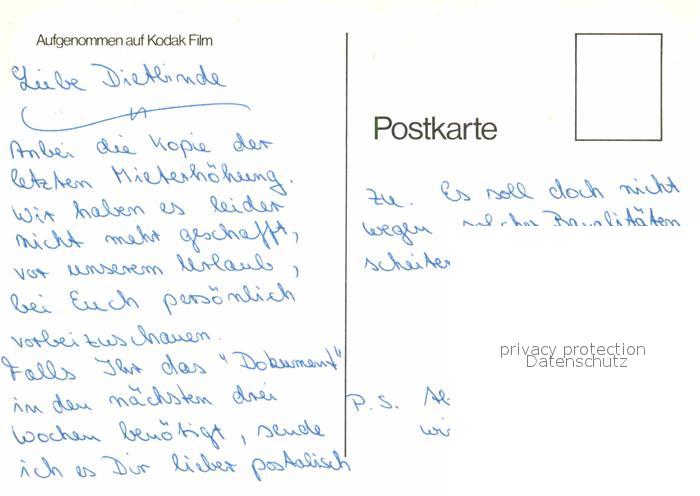 Aufgenommen auf Kodak Film
Liebe Dietlinde
Anbei die Kopie der
letzten Mieterhöhung.
Wir haben es leider
nicht mehr geschafft,
vor unserem Urlaub,
bei Euch persönlich
vorbeizuschauen.
Falls Ihr das "Dokument"
in den nächsten drei
Wochen benötigt, sende
ich es Dir lieber postalisch
Postkarte
zu. Es soll doch nicht
wegen solcher Banalitäten
scheiter
privacy protection
Datenschutz
P.S. Ab
wi